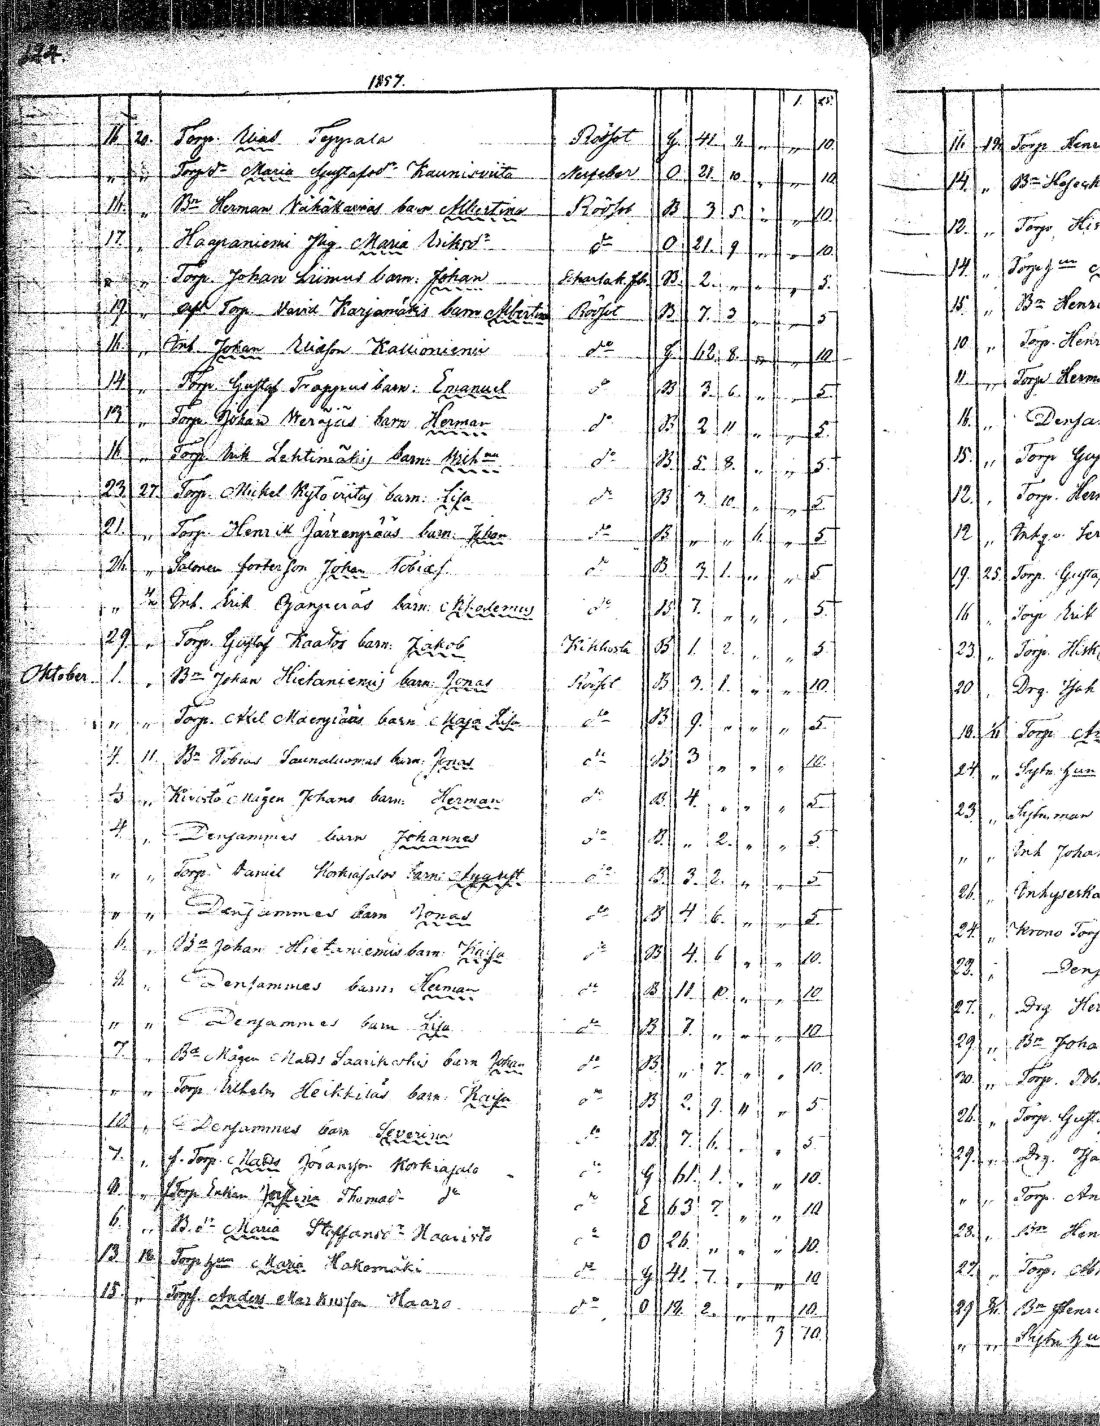 124.
1857.
1. 25.
16. 20. Torp. Elias Teppala Rödsot G. 41. 2. " " 10.
" " Torp dr Maria Gustafsdr Kaunisviita Nerfeber O 21. 10. " " 10.
16. " Bn Herman Vähäkarvas barn Albertina Rödsot B 3 5. " " 10.
17. " Haapaniemi Pig. Maria Eriksdr do O 21. 9 " " 10.
" " Torp. Johan Liimus barn: Johan Scharlak.fb. B. 2. " " " 5.
19. " Torp. David Karjamäkis barn Albertina Rödsot B 7. 3 " " 5
16. " Inh. Johan Eliasson Kallioniemi do G. 62. 8. " " 10.
14. " Torp. Gustaf Trappus barn: Emanuel do B 3 6. " " 5.
13. " Torp. Johan barn Herman do B 2 11 " " 5.
16. " Torp. Erik Lehtimäkis barn: do B. 5. 8. " " 5
23. 27. Torp. Mickel Kytöviitas barn: Lisa do B 3. 10. " " 5
21. " Torp. Henrik Järvenpääs barn: Johan do B " " " 5
26. " Salonen Johan Tobias do B. 3. 1. " " 5
" " Inh. Erik barn: do B 7. " " " 5.
29. " Torp. Gustaf Kaatos barn: Jakob Kikhosta B 1. 2. " " 5.
Oktober. 1. " Bn Johan Hietaniemis barn: Jonas Rödsot B 3. 1. " " 10.
" " Torp. Axel Maenpääs barn Maja Lisa do B 9. " " " 5
4. 11. Bn Tobias Saunaluomas barn: Jonas do B 3 " " " 10.
3 " Kivistö Mågen Johans barn: Herman do B 4. " " " 5
4. " Densammes barn Johannes do B. " 2. " " 5.
" " Torp. Daniel Korkiasalos barn: August do B. 3. 2. " " 5
" " Densammes barn Jonas do B 4 6. " " 5.
6. " Bn Johan Hietaniemis barn: Kaisa do B 4. 6 " " 10.
8. " Densammes barn: Herman do B 11. 10. " " 10
" " Densammes barn Lisa do B 7. " " " 10
7. " Bn Mågen Matts Saarikoskis barn Johan do B " 7. " " 10.
" " Torp. Wilhelm Heikkiläs barn: Kaisa do B 2. 9. " " 5
10. " Densammes barn Severina do B. 7. 6. " " 5
7. " f. Torp. Matts Johansson Korkiasalo do G 61. 1. " " 10.
" Torp Enkan Justina Thomaedr do E 63 7. " " 10
6. " B. dr Maria Staffansdr Haaristo do O 26. " " " 10.
13. 18. Torp hun Maria Hakomäki do G 41. 7. " " 10
15. " Torps. Anders Markusson Haaro do O 18. 2. " " 10.
3 70.
16. 18. Torp Henr
14. " Bn
12. " Torp. His
14. " Torp hun
15. " Bn Henri
10 " Torp. Henr
11. " Torp Herm
16. " Densa
15. " Torp Gus
12. " Torp. Her
12 "
19. 25. Torp. Gusta
16 " Torp Erik
23. " Torp. Hisk
20 " Drg. Isak
18. Torp. An
24. " Sytn. hun
23. Sytn. man
" " Inh Joha
26. " Inhyserko
24. " Krono Torp
23. " Dens
27. " Drg Her
29. " Bn Joha
30. " Torp. Tob
26. " Torp. Gust
29. " Drg. Isa
" " Torp. An
28. " Bn Hen
27. " Torp.
29 Bn Henri
" " Sytn. hu